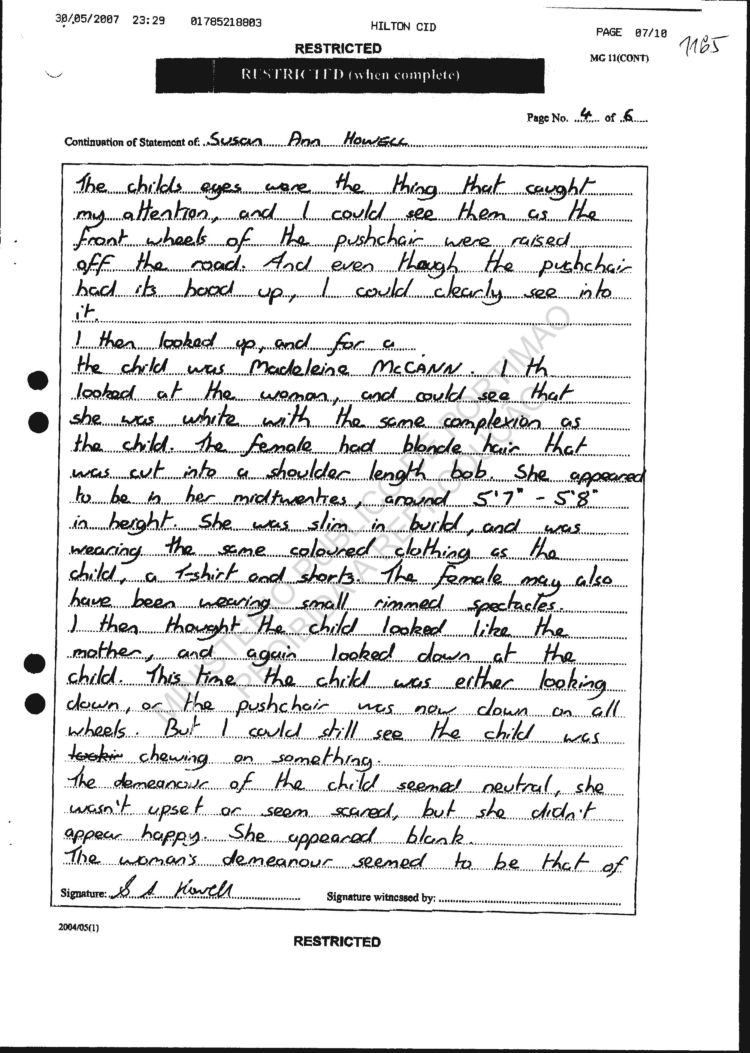 30/05/2007 23:29 01785218803 HILTON CID PAGE 07/10
1165
RESTRICTED
MG 11(CONT)
RESTRICTED (when complete)
Page No. 4 of 6
Continuation of Statement of: Susan Ann HOWELL
The childs eyes were the thing that caught
my attention, and I could see them as the
front wheels of the pushchair were raised
off the road. And even though the pushchair
had its hood up, I could clearly see into
it.
I then looked up, and for a
the child was Madeleine McCANN. I th
looked at the woman, and could see that
she was white with the same complexion as
the child. The female had blonde hair that
was cut into a shoulder length bob. She appeared
to be in her midtwenties, around 5'7" - 5'8"
in height. She was slim in build, and was
wearing the same coloured clothing as the
child, a T-shirt and shorts. The female may also
have been wearing small rimmed spectacles.
I then thought the child looked like the
mother, and again looked down at the
child. This time the child was either looking
down, or the pushchair was now down on all
wheels. But I could still see the child was
chewing on something.
The demeanour of the child seemed neutral, she
wasn't upset or seem scared, but she didn't
appear happy. She appeared blank.
The woman's demeanour seemed to be that of
Signature: S A Howell Signature witnessed by:
2004/05(1)
RESTRICTED
MINISTERIO PUBLICO DE PORTIMAO
PROIBIDA A REPRODUCAO